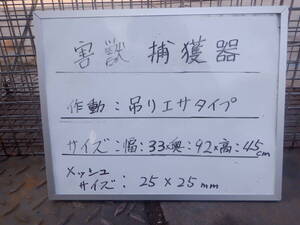 害獣 捕獲器
作動：吊りエサタイプ
サイズ：幅：33×奥：92×高：45cm
メッシュ
サイズ：25×25mm